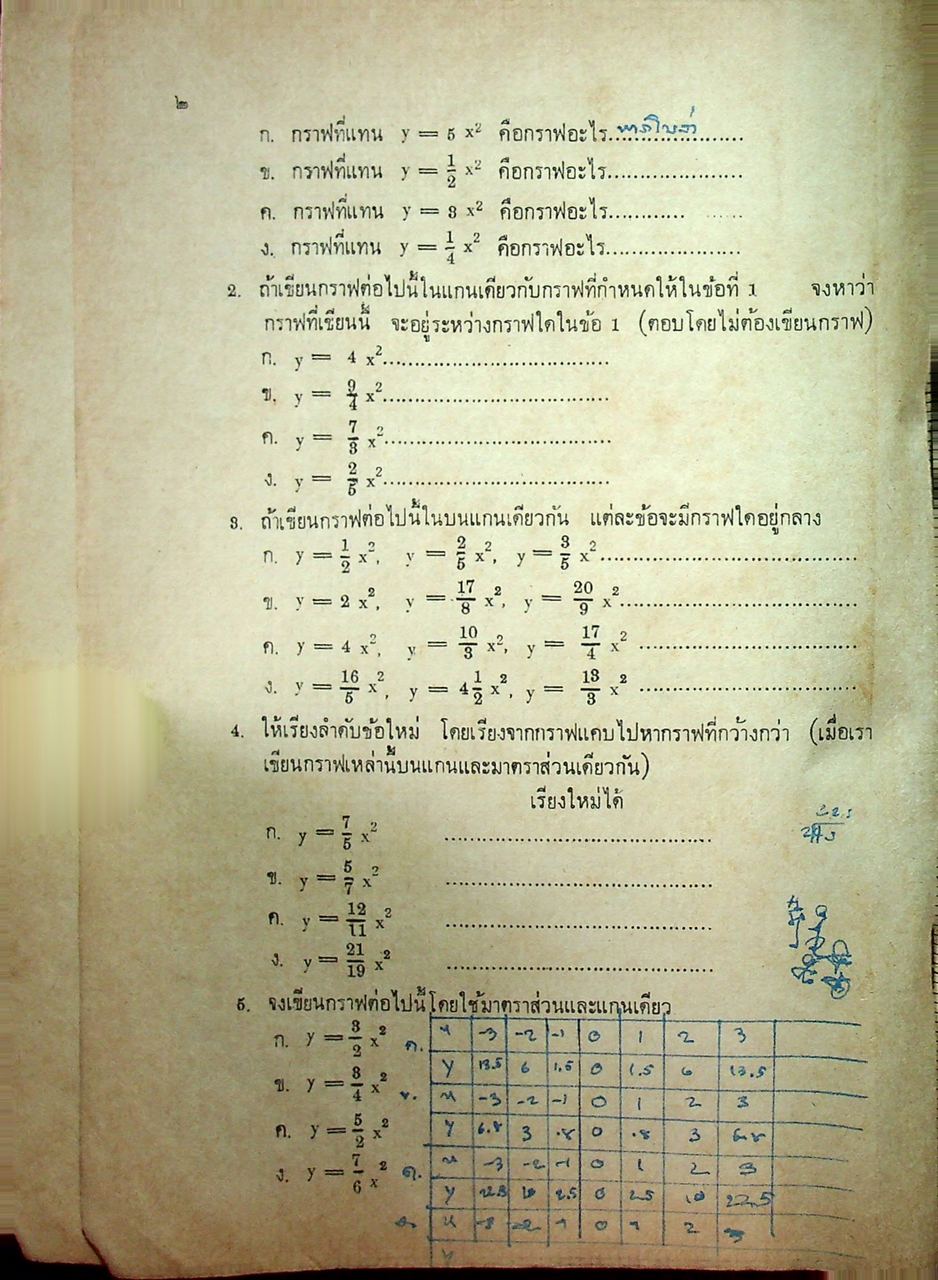 ๒
ก. กราฟที่แทน y = 5 x² คือกราฟอะไร..พาราโบลา..................
ข. กราฟที่แทน y = 1/2 x² คือกราฟอะไร.....................
ค. กราฟที่แทน y = 3 x² คือกราฟอะไร............ ......
ง. กราฟที่แทน y = 1/4 x² คือกราฟอะไร.....................
2. ถ้าเขียนกราฟต่อไปนี้ในแกนเดียวกับกราฟที่กำหนดให้ในข้อที่ 1 จงหาว่า
กราฟที่เขียนนี้ จะอยู่ระหว่างกราฟใดในข้อ 1 (ตอบโดยไม่ต้องเขียนกราฟ)
ก. y = 4 x²....................................
ข. y = 9/4 x²....................................
ค. y = 7/3 x²....................................
ง. y = 2/5 x²....................................
3. ถ้าเขียนกราฟต่อไปนี้ในบนแกนเดียวกัน แต่ละข้อจะมีกราฟใดอยู่กลาง
ก. y = 1/2 x², y = 2/5 x², y = 3/5 x²........................................
ข. y = 2 x², y = 17/8 x², y = 20/9 x²......................................
ค. y = 4 x², y = 10/3 x², y = 17/4 x² ...................................
ง. y = 16/5 x², y = 4 1/2 x², y = 13/3 x² ...................................
4. ให้เรียงลำดับข้อใหม่ โดยเรียงจากกราฟแคบไปหากราฟที่กว้างกว่า (เมื่อเรา
เขียนกราฟเหล่านี้บนแกนและมาตราส่วนเดียวกัน)
เรียงใหม่ได้
ก. y = 7/5 x² ...........................................
ข. y = 5/7 x² ...........................................
ค. y = 12/11 x² ...........................................
ง. y = 21/19 x² ...........................................
5. จงเขียนกราฟต่อไปนี้โดยใช้มาตราส่วนและแกนเดียว
ก. y = 3/2 x²
ข. y = 3/4 x²
ค. y = 5/2 x²
ง. y = 7/6 x²
ก. x -3 -2 -1 0 1 2 3
y 13.5 6 1.5 0 1.5 6 13.5
ข. x -3 -2 -1 0 1 2 3
y 6.8 3 .8 0 .8 3 6.8
ค. x -3 -2 -1 0 1 2 3
y 22.5 10 2.5 0 2.5 10 22.5
ง. x -3 -2 -1 0 1 2 3
y